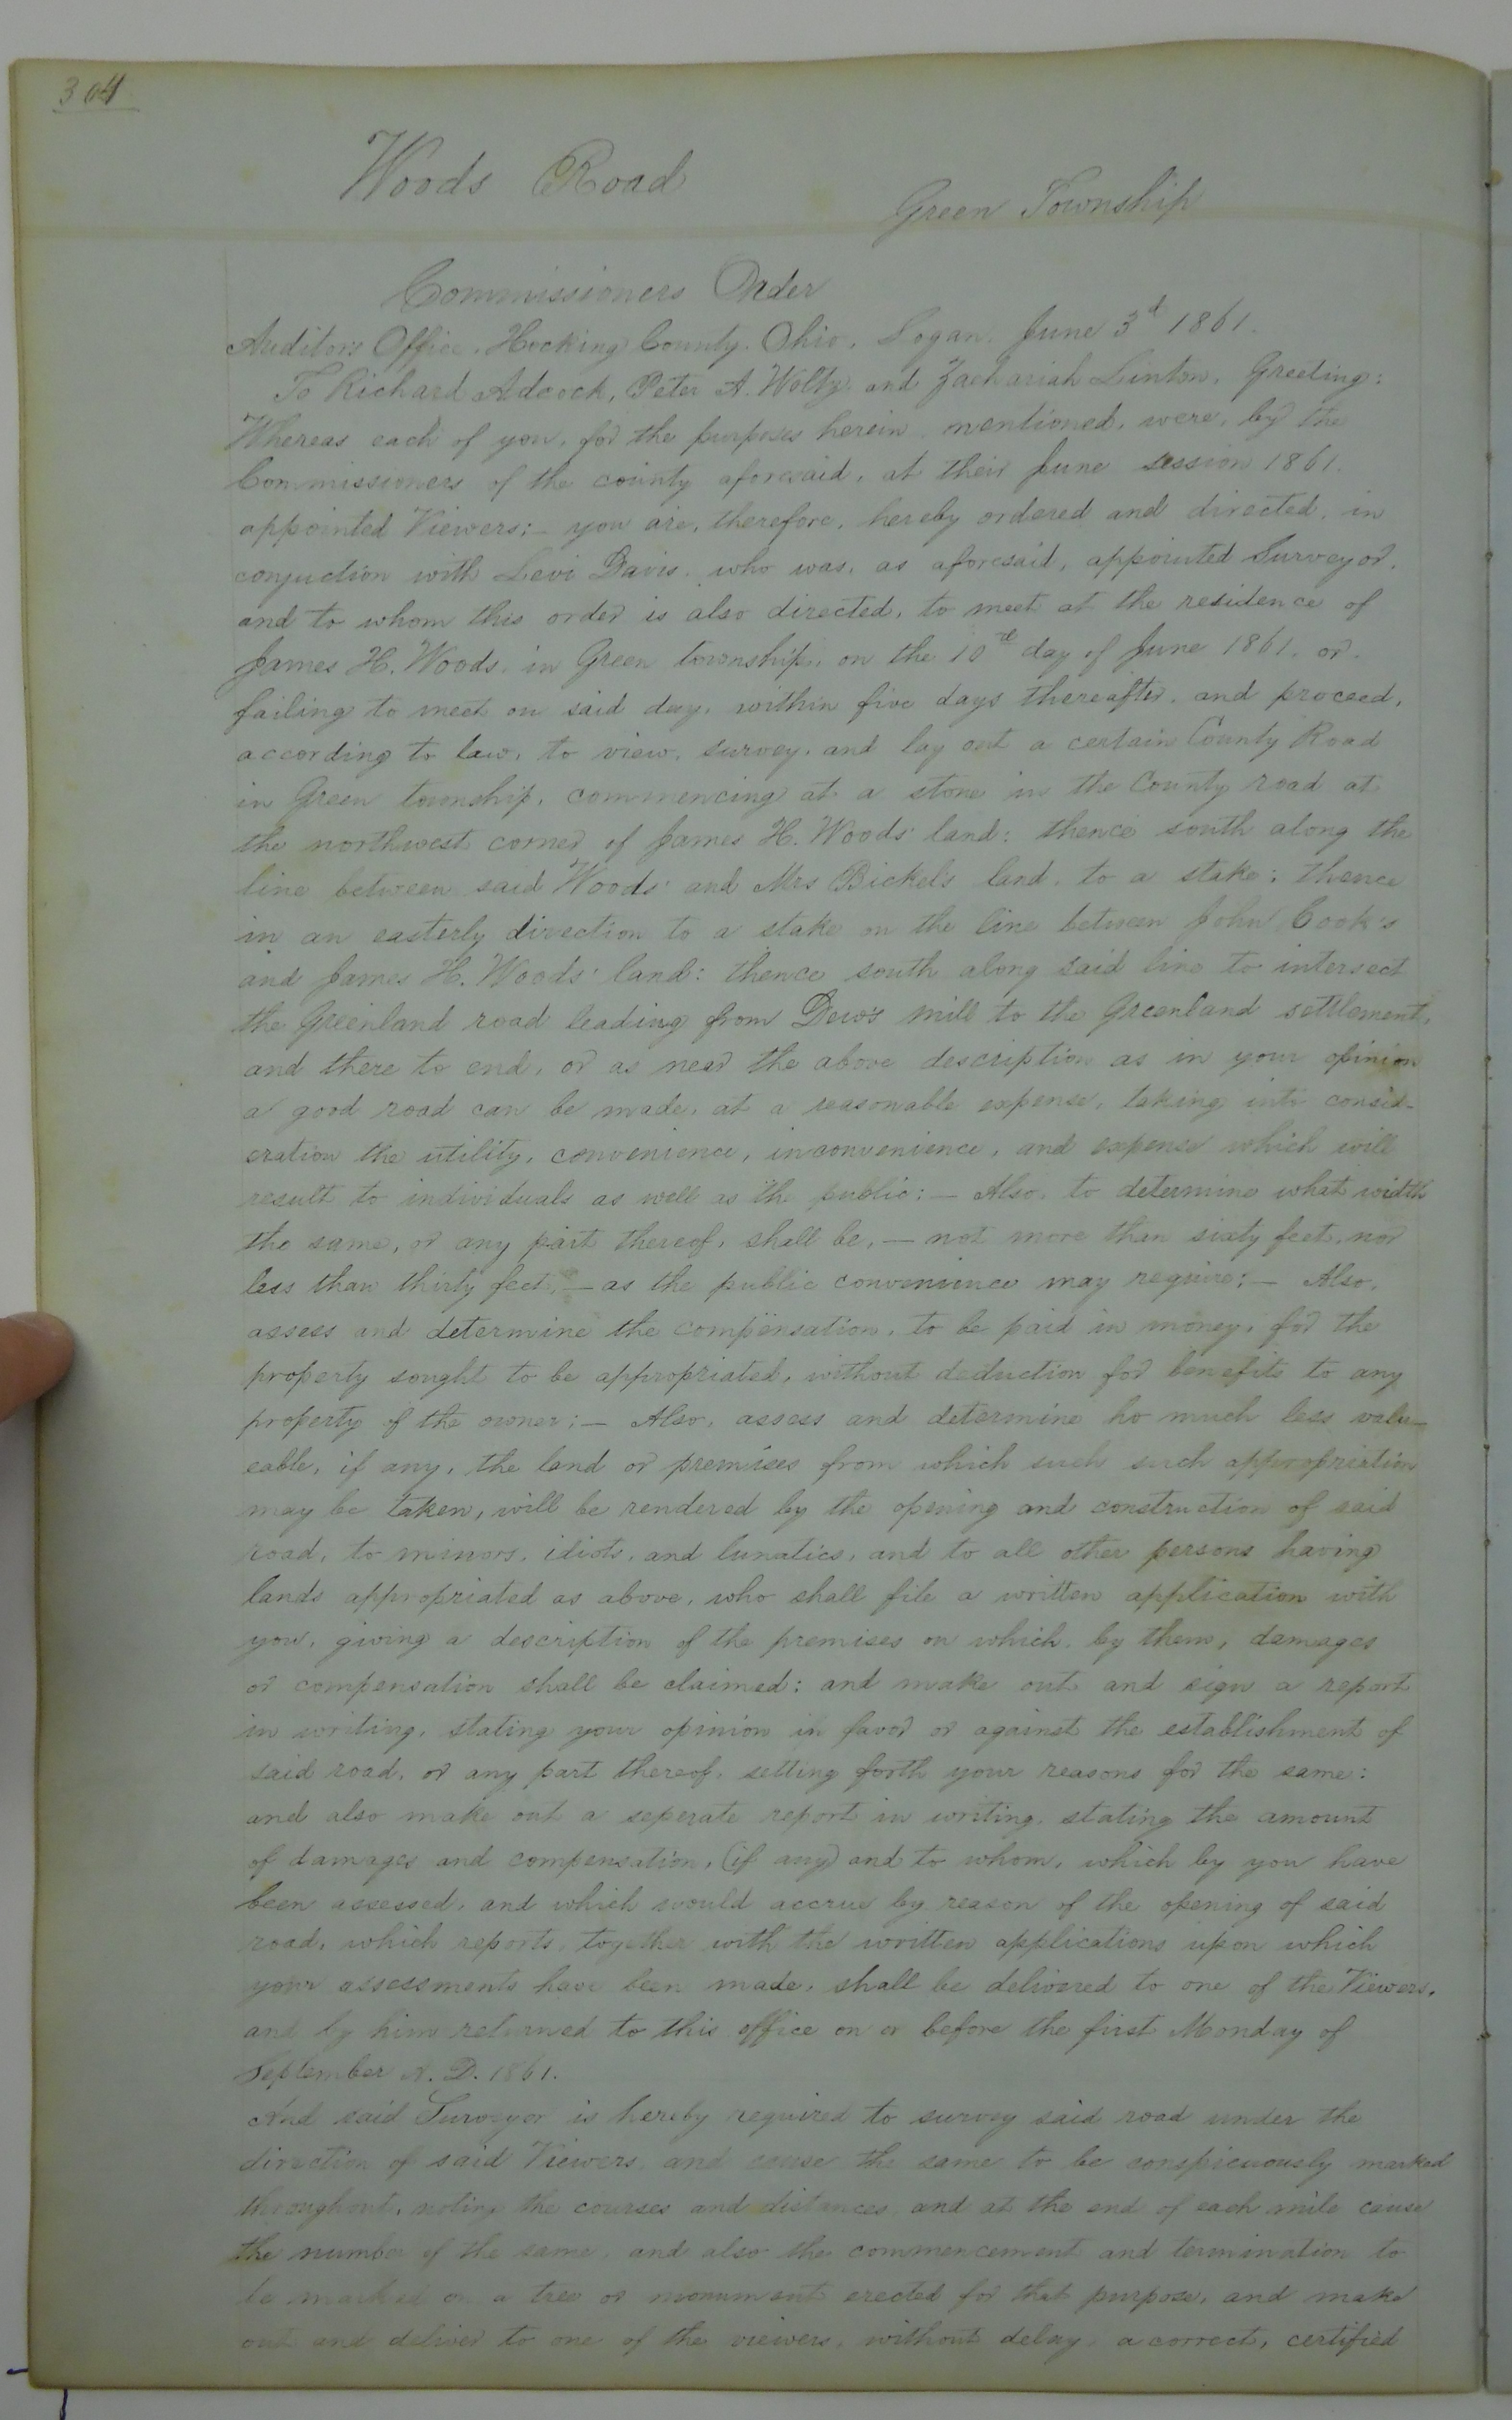 304
Woods Road
Green Township
Commissioners Order
Auditors Office, Hocking County, Ohio, Logan, June 3d 1861.
To Richard Adcock, Peter A. Wolty and Zachariah Linton, Greeting:
Whereas each of you, for the purposes herein mentioned, were, by the
Commissioners of the county aforesaid, at their June session 1861.
appointed Viewers:— you are, therefore, hereby ordered and directed, in
conjuction with Levi Davis, who was, as aforesaid, appointed Surveyor,
and to whom this order is also directed, to meet at the residence of
James H. Woods, in Green township, on the 10th day of June 1861, or
failing to meet on said day, within five days thereafter, and proceed,
according to law, to view, survey, and lay out a certain County Road
in Green township, commencing at a stone in the County road at
the northwest corner of James H. Woods' land: thence south along the
line between said Woods' and Mrs Bickel's land, to a stake; thence
in an easterly direction to a stake on the line between John Cook's
and James H. Woods' land: thence south along said line to intersect
the Greenland road leading from Dew's mill to the Greenland settlement,
and there to end, or as near the above description as in your opinion
a good road can be made, at a reasonable expense, taking into consid-
eration the utility, convenience, inconvenience, and expense which will
result to individuals as well as the public:— Also, to determine what width
the same, or any part thereof, shall be,— not more than sixty feet, nor
less than thirty feet,— as the public convenience may require:— Also,
assess and determine the compensation, to be paid in money, for the
property sought to be appropriated, without deduction for benefits to any
property of the owner;— Also, assess and determine ho much less valu-
eable, if any, the land or premises from which such such appropriation
may be taken, will be rendered by the opening and construction of said
road, to minors, idiots, and lunatics, and to all other persons having
lands appropriated as above, who shall file a written application with
you, giving a description of the premises on which, by them, damages
or compensation shall be claimed: and make out and sign a report
in writing, stating your opinion in favor or against the establishment of
said road, or any part thereof, setting forth your reasons for the same:
and also make out a seperate report in writing, stating the amount
of damages and compensation, (if any) and to whom, which by you have
been assessed, and which would accrue by reason of the opening of said
road, which reports, together with the written applications upon which
your assessments have been made, shall be delivered to one of the Viewers,
and by him returned to this office on or before the first Monday of
September A. D. 1861.
And said Surveyor is hereby required to survey said road under the
direction of said Viewers, and cause the same to be conspicuously marked
throughout, noting the courses and distances, and at the end of each mile cause
the number of the same, and also the commencement and termination to
be marked on a tree or monument erected for that purpose, and make
out and deliver to one of the viewers, without delay, a correct, certified